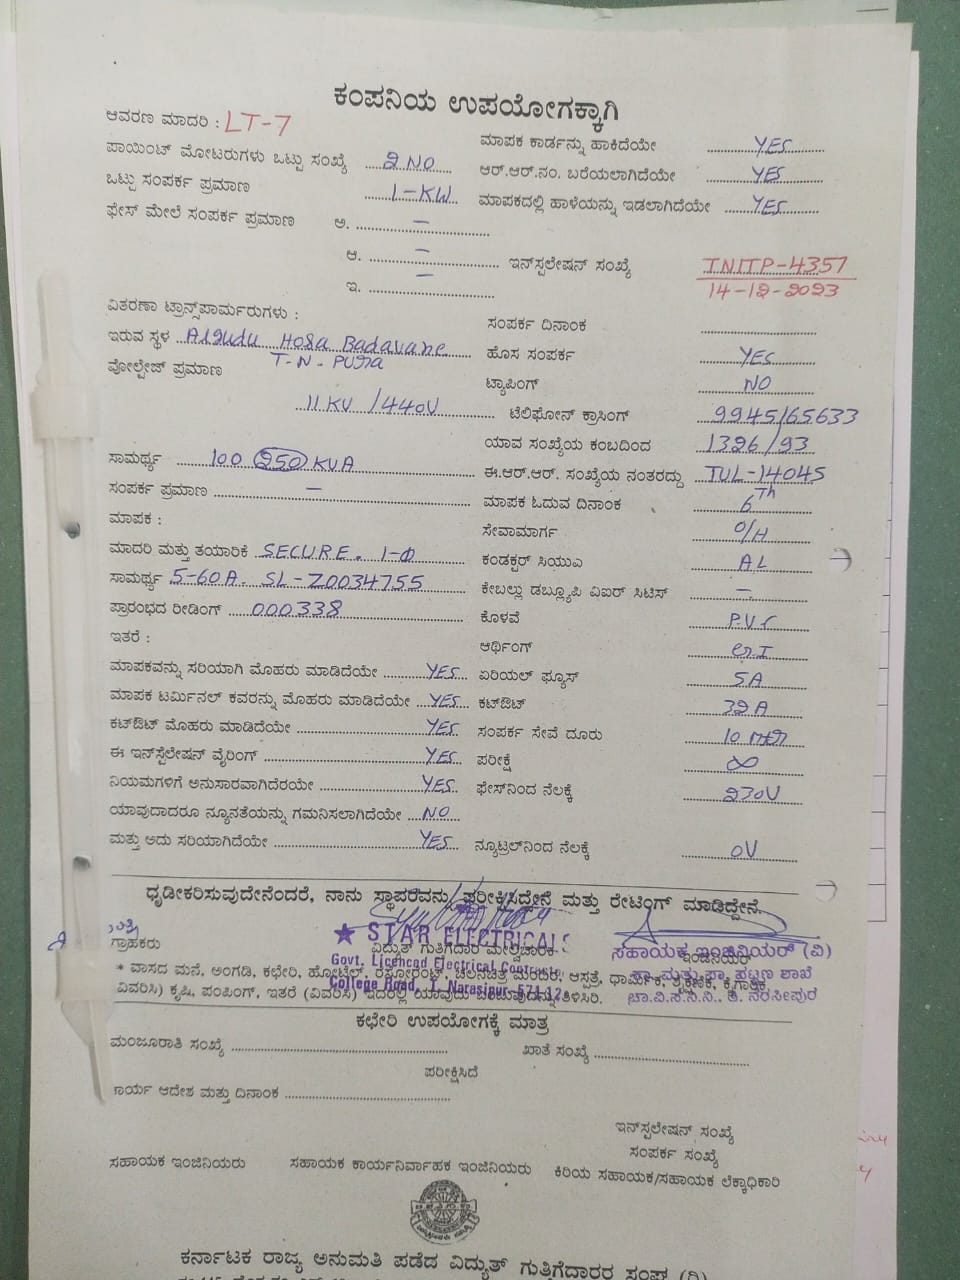 ಕಂಪನಿಯ ಉಪಯೋಗಕ್ಕಾಗಿ
ಆವರಣ ಮಾದರಿ : LT-7
ಪಾಯಿಂಟ್ ಮೋಟರುಗಳು ಒಟ್ಟು ಸಂಖ್ಯೆ 2 NO
ಒಟ್ಟು ಸಂಪರ್ಕ ಪ್ರಮಾಣ 1-KW
ಫೇಸ್ ಮೇಲೆ ಸಂಪರ್ಕ ಪ್ರಮಾಣ ಅ. –
ಆ. –
ಇ. –
ಮಾಪಕ ಕಾರ್ಡನ್ನು ಹಾಕಿದೆಯೇ YES
ಆರ್.ಆರ್.ನಂ. ಬರೆಯಲಾಗಿದೆಯೇ YES
ಮಾಪಕದಲ್ಲಿ ಹಾಳೆಯನ್ನು ಇಡಲಾಗಿದೆಯೇ YES
ಇನ್‌ಸ್ಟಲೇಷನ್ ಸಂಖ್ಯೆ TNITP-4357
14-12-2023
ವಿತರಣಾ ಟ್ರಾನ್ಸ್‌ಪಾರ್ಮರುಗಳು :
ಇರುವ ಸ್ಥಳ Algudu Hosa Badavane
T-N-Pura
ವೋಲ್ಟೇಜ್ ಪ್ರಮಾಣ
11 KV / 440V
ಸಾಮರ್ಥ್ಯ 100 250 KVA
ಸಂಪರ್ಕ ಪ್ರಮಾಣ –
ಮಾಪಕ :
ಮಾದರಿ ಮತ್ತು ತಯಾರಿಕೆ SECURE. 1-Φ
ಸಾಮರ್ಥ್ಯ 5-60A. SL-Z0034755
ಪ್ರಾರಂಭದ ರೀಡಿಂಗ್ 000338
ಇತರೆ :
ಮಾಪಕವನ್ನು ಸರಿಯಾಗಿ ಮೊಹರು ಮಾಡಿದೆಯೇ YES
ಮಾಪಕ ಟರ್ಮಿನಲ್ ಕವರನ್ನು ಮೊಹರು ಮಾಡಿದೆಯೇ YES
ಕಟ್‌ಔಟ್ ಮೊಹರು ಮಾಡಿದೆಯೇ YES
ಈ ಇನ್‌ಸ್ಟಲೇಷನ್ ವೈರಿಂಗ್ YES
ನಿಯಮಗಳಿಗೆ ಅನುಸಾರವಾಗಿದೆರಯೇ YES
ಯಾವುದಾದರೂ ನ್ಯೂನತೆಯನ್ನು ಗಮನಿಸಲಾಗಿದೆಯೇ NO
ಮತ್ತು ಅದು ಸರಿಯಾಗಿದೆಯೇ YES
ಸಂಪರ್ಕ ದಿನಾಂಕ
ಹೊಸ ಸಂಪರ್ಕ YES
ಟ್ಯಾಪಿಂಗ್ NO
ಟೆಲಿಫೋನ್ ಕ್ರಾಸಿಂಗ್ 9945165633
ಯಾವ ಸಂಖ್ಯೆಯ ಕಂಬದಿಂದ 1326/93
ಈ.ಆರ್.ಆರ್. ಸಂಖ್ಯೆಯ ನಂತರದ್ದು TUL-14045
ಮಾಪಕ ಓದುವ ದಿನಾಂಕ 6Th
ಸೇವಾಮಾರ್ಗ O/H
ಕಂಡಕ್ಟರ್ ಸಿಯುಎ AL
ಕೇಬಲ್ಲು ಡಬ್ಲ್ಯೂಪಿ ವಿಐರ್ ಸಿಟಿಸ್ –
ಕೊಳವೆ P.V.C
ಆರ್ಥಿಂಗ್ G.I
ಏರಿಯಲ್ ಫ್ಯೂಸ್ 5A
ಕಟ್‌ಔಟ್ 32A
ಸಂಪರ್ಕ ಸೇವೆ ದೂರು 10 mtr
ಪರೀಕ್ಷೆ ∞
ಫೇಸ್‌ನಿಂದ ನೆಲಕ್ಕೆ 230V
ನ್ಯೂಟ್ರಲ್‌ನಿಂದ ನೆಲಕ್ಕೆ 0V
ಧೃಡೀಕರಿಸುವುದೇನೆಂದರೆ, ನಾನು ಸ್ಥಾಪರವನ್ನು ಪರೀಕ್ಷಿಸಿದ್ದೇನೆ ಮತ್ತು ರೇಟಿಂಗ್ ಮಾಡಿದ್ದೇನೆ.
★ STAR ELECTRICALS
ಗ್ರಾಹಕರು ವಿದ್ಯುತ್ ಗುತ್ತಿಗೆದಾರ ಮೇಲ್ವಿಚಾರಕ ಇಂಜಿನಿಯರ್
ಸಹಾಯಕ ಇಂಜಿನಿಯರ್ (ವಿ)
Govt. Licenced Electrical Contractor
College Road, T. Narasipur-571 12
ಪಟ್ಟಣ ಶಾಖೆ
ಚಾ.ವಿ.ಸ.ನಿ.ನಿ., ತಿ. ನರಸೀಪುರ
* ವಾಸದ ಮನೆ, ಅಂಗಡಿ, ಕಛೇರಿ, ಹೋಟೆಲ್, ರೆಸ್ಟೋರೆಂಟ್, ಚಲನಚಿತ್ರ ಮಂದಿರ, ಆಸ್ಪತ್ರೆ, ಧಾರ್ಮಿಕ, ಶೈಕ್ಷಣಿಕ, ಕೈಗಾರಿಕೆ,
ವಿವರಿಸಿ) ಕೃಷಿ, ಪಂಪಿಂಗ್, ಇತರೆ (ವಿವರಿಸಿ) ಇದರಲ್ಲಿ ಯಾವುದು ತಿಳಿಸಿರಿ.
ಕಛೇರಿ ಉಪಯೋಗಕ್ಕೆ ಮಾತ್ರ
ಮಂಜೂರಾತಿ ಸಂಖ್ಯೆ ಖಾತೆ ಸಂಖ್ಯೆ
ಪರೀಕ್ಷಿಸಿದೆ
ಕಾರ್ಯ ಆದೇಶ ಮತ್ತು ದಿನಾಂಕ
ಇನ್‌ಸ್ಟಲೇಷನ್ ಸಂಖ್ಯೆ
ಸಂಪರ್ಕ ಸಂಖ್ಯೆ
ಸಹಾಯಕ ಇಂಜಿನಿಯರು ಸಹಾಯಕ ಕಾರ್ಯನಿರ್ವಾಹಕ ಇಂಜಿನಿಯರು ಕಿರಿಯ ಸಹಾಯಕ/ಸಹಾಯಕ ಲೆಕ್ಕಾಧಿಕಾರಿ
ಕರ್ನಾಟಕ ರಾಜ್ಯ ಅನುಮತಿ ಪಡೆದ ವಿದ್ಯುತ್ ಗುತ್ತಿಗೆದಾರರ ಸಂಘ (ರಿ)